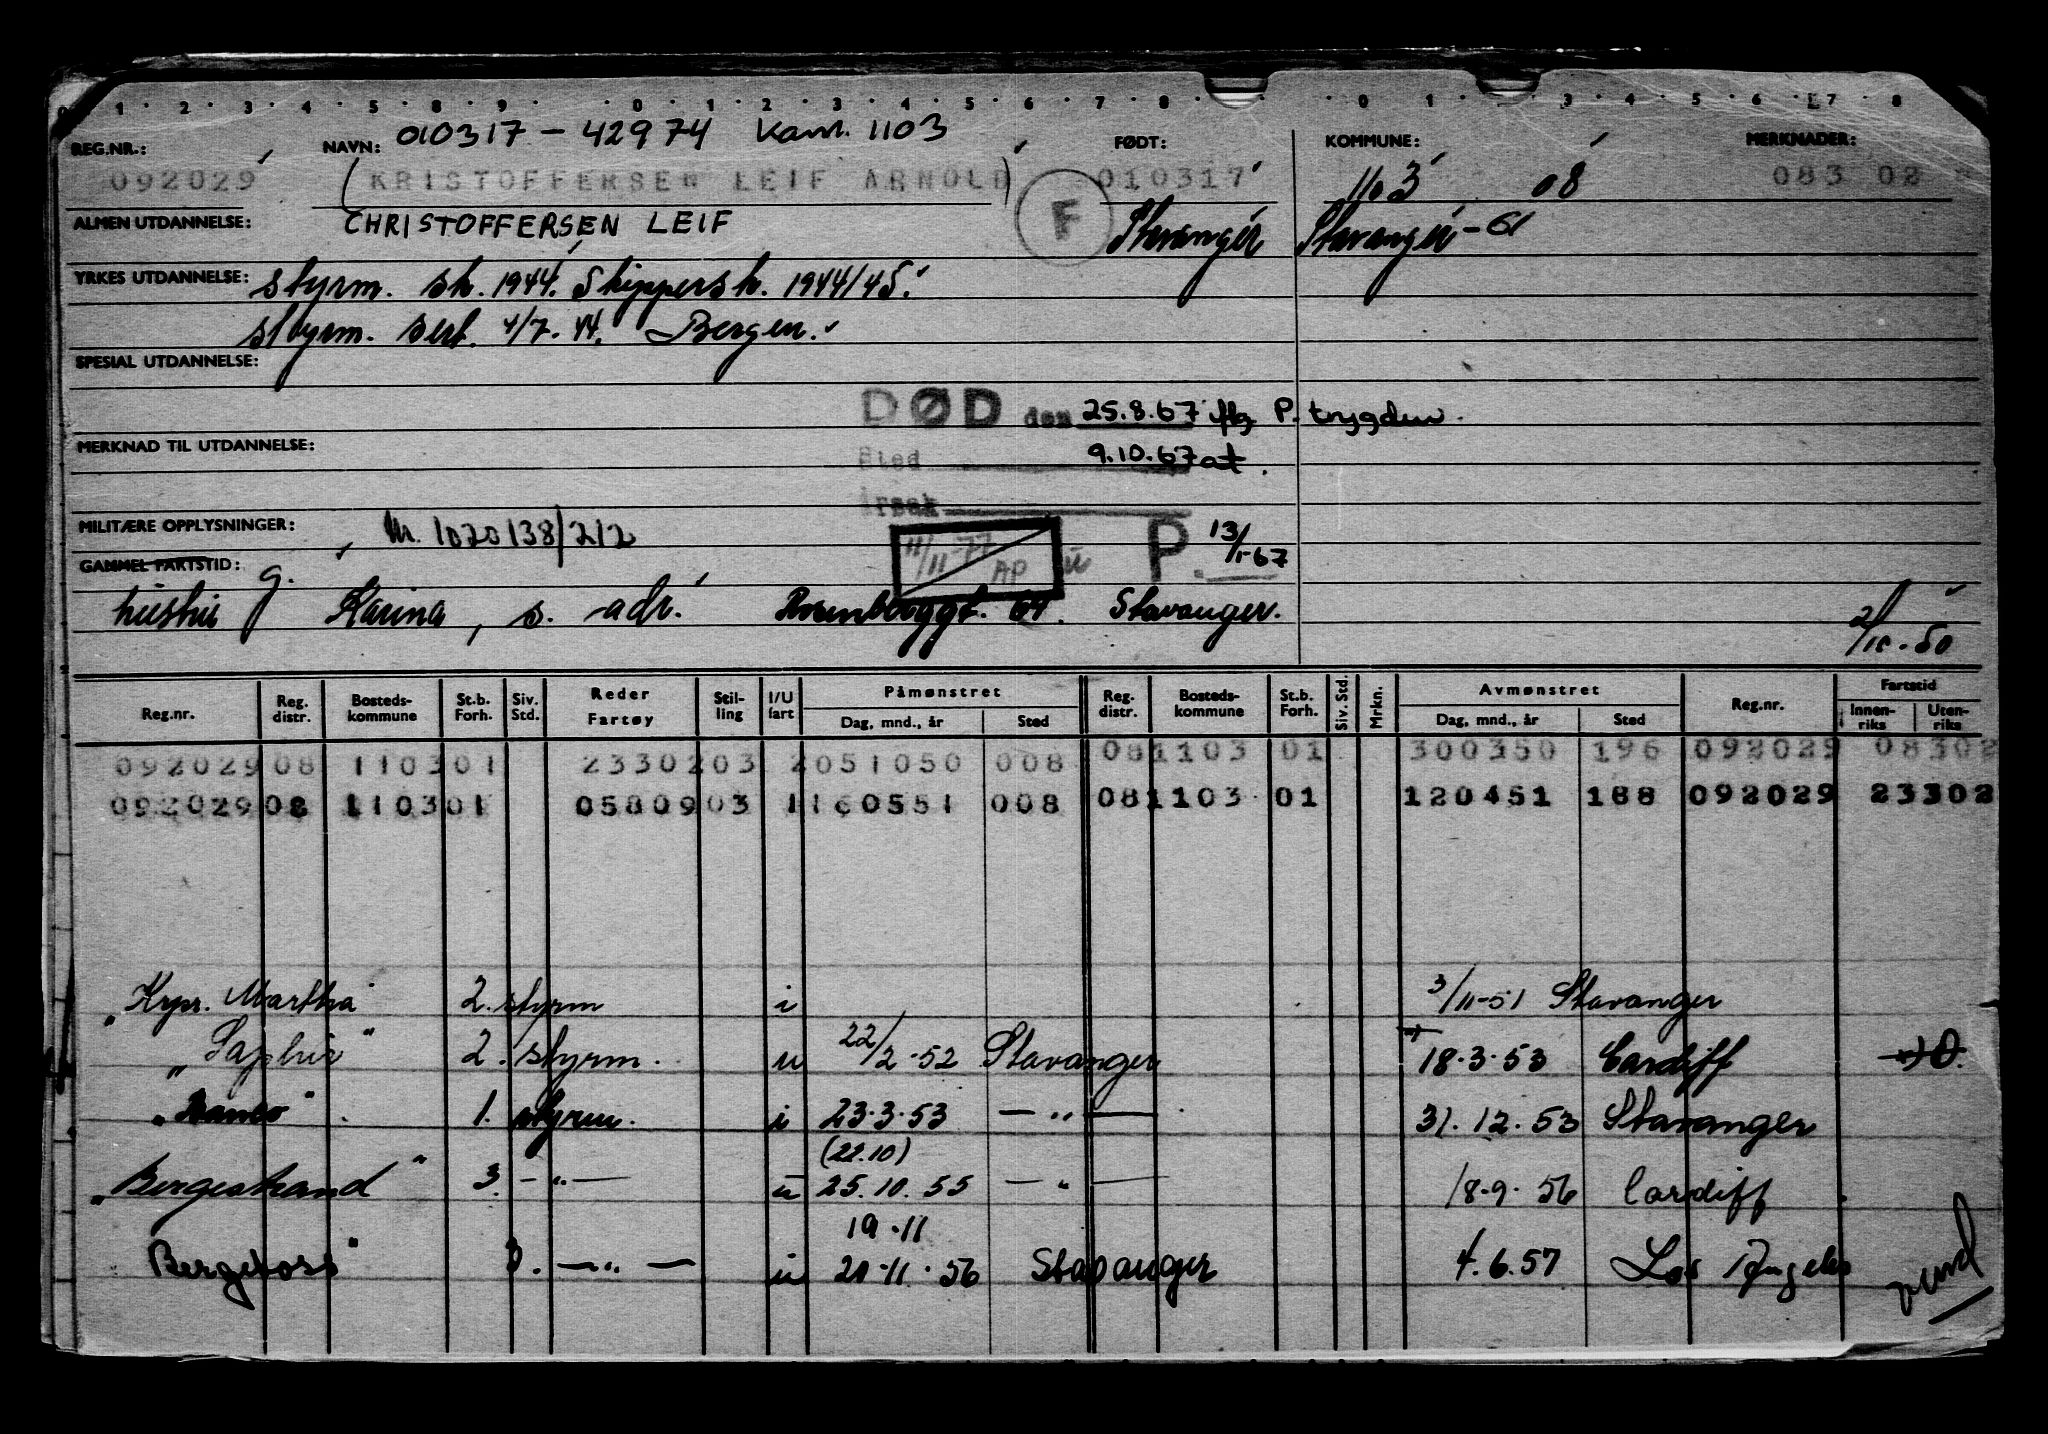 0 1 2 3 4 5 8 9 0 1 2 3 4 5 6 7 8 0 1 3 4 5 6 7 8
010317 - 42974 Kom. 1103
REG.NR.: NAVN: FØDT: KOMMUNE: MERKNADER:
092029 (KRISTOFFERSEN LEIF ARNOLD) 010317 1103 08 083 02
ALMEN UTDANNELSE: CHRISTOFFERSEN LEIF F Stavanger Stavanger - 61
YRKES UTDANNELSE: styrm. sk. 1944. Skippersk. 1944/45.
styrm. sert. 4/7. 44. Bergen.
SPESIAL UTDANNELSE:
DØD den 25.8.67 iflg P. trygden.
MERKNAD TIL UTDANNELSE:
Sted 9.10.67 at.
Årsak
MILITÆRE OPPLYSNINGER: Nr. 1020138/212
11/11-77 AP P. 13/1-67
GAMMEL FARTSTID: g.
hustru Karina, s. adr. 64. Stavanger.
2/10-50
Reg.nr. Reg. distr. Bosteds-kommune St.b. Forh. Siv. Std. Reder Fartøy Stil-ling I/U fart Påmønstret Dag, mnd., år Sted Reg. distr. Bosteds-kommune St.b. Forh. Siv. Std. Mrkn. Avmønstret Dag, mnd., år Sted Reg.nr. Fartstid Innen-riks Uten-riks
092029 08 1103 01 23302 03 2 051050 008 08 1103 01 300350 196 092029 08302
092029 08 1103 01 05809 03 1 160551 008 08 1103 01 120451 188 092029 23302
"Krpr. Martha" 2. styrm i 3/11-51 Stavanger
"Saphir" 2. styrm. u 22/2-52 Stavanger 18.3.53 Cardiff
1. styrm. i 23.3.53 — " — 31.12.53 Stavanger
(22.10)
"Bergestrand" 3. — " — u 25.10.55 — " — 18.9.56 Cardiff
19.11
Bergefoss" 3. — " — u 20.11.56 Stavanger 4.6.57 Los Angeles